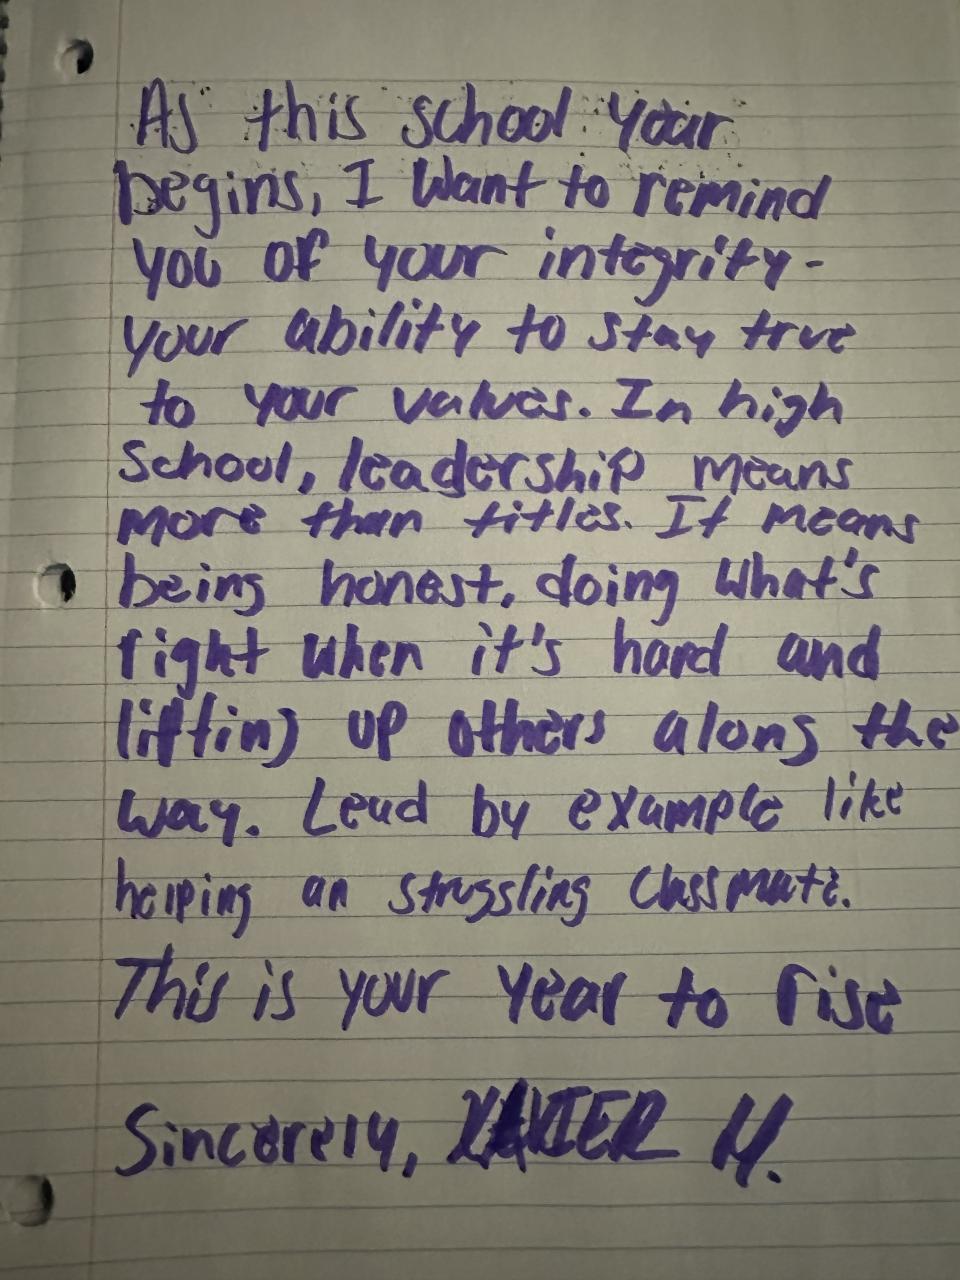 As this school year
begins, I want to remind
you of your integrity-
your ability to stay true
to your values. In high
school, leadership means
more than titles. It means
being honest, doing what's
right when it's hard and
lifting up others along the
way. Lead by example like
helping an struggling classmate.
This is your year to rise
Sincerely, XAVIER M.